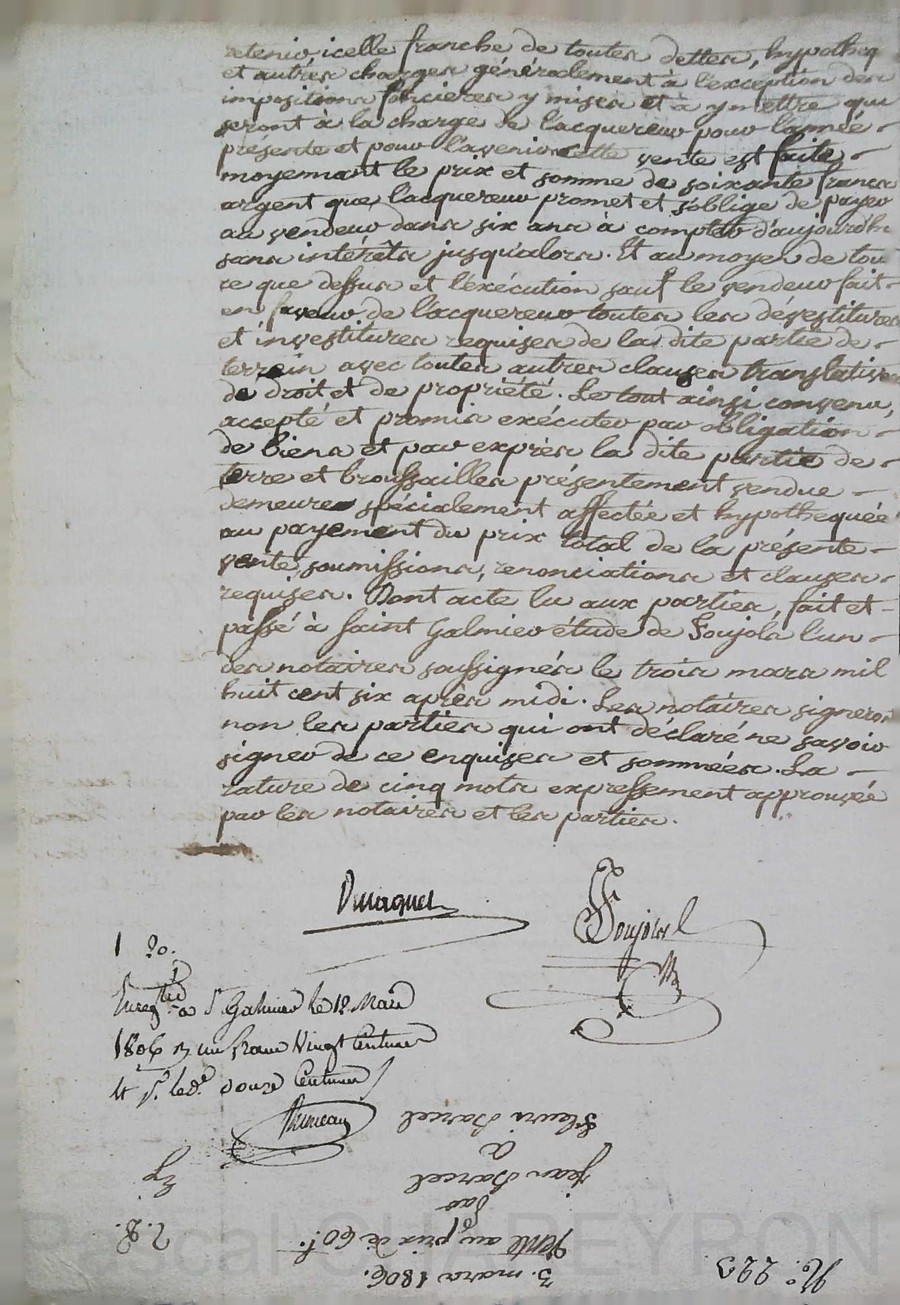 retenir icelle franche de toutes dettes, hypotheq
et autres charges généralement à l'exception des
impositions foncieres y mises et a y mettre qui
seront à la charge de l'acquereur pour l'année
presente et pour l'avenir cette vente est faite
moyennant le prix et somme de soixante francs
argent que l'acquereur promet et s'oblige de payer
au vendeur dans six ans à compter d'aujourdh
sans intérêts jusqu'alors. Et au moyen de tou
ce que dessus et l'éxécution sauf le vendeur fait
en faveur de l'acquereur toutes les dévestitures
et investitures requises de la dite partie de
terrein avec toutes autres clauses translatives
de droit et de propriété. Le tout ainsi convenu,
accepté et promis exécuter par obligation
de biens et par exprès la dite partie de
terre et broussailles présentement vendue
demeure spécialement affectée et hypothequée
au payement du prix total de la présente
vente soumissions, renonciations et clauses
requises. Dont acte lu aux parties, fait et
passé à Saint Galmier étude de Soujol l'un
des notaires soussignés le trois mars mil
huit cent six après midi. Les notaires signeront
non les parties qui ont déclaré ne savoir
signer de ce enquises et sommées. La
rature de cinq mots expressement approuvée
par les notaires et les parties.
Soujol
1 20.
Enregtré a St Galmier le 12 Mars
1806 un franc Vingt Centimes
douze Centimes
N.° 223
3. mars 1806.
Vente au prix de 60 f.
par
jean Barcel
a
fleuri Barcel
Pascal CHAPEYRON